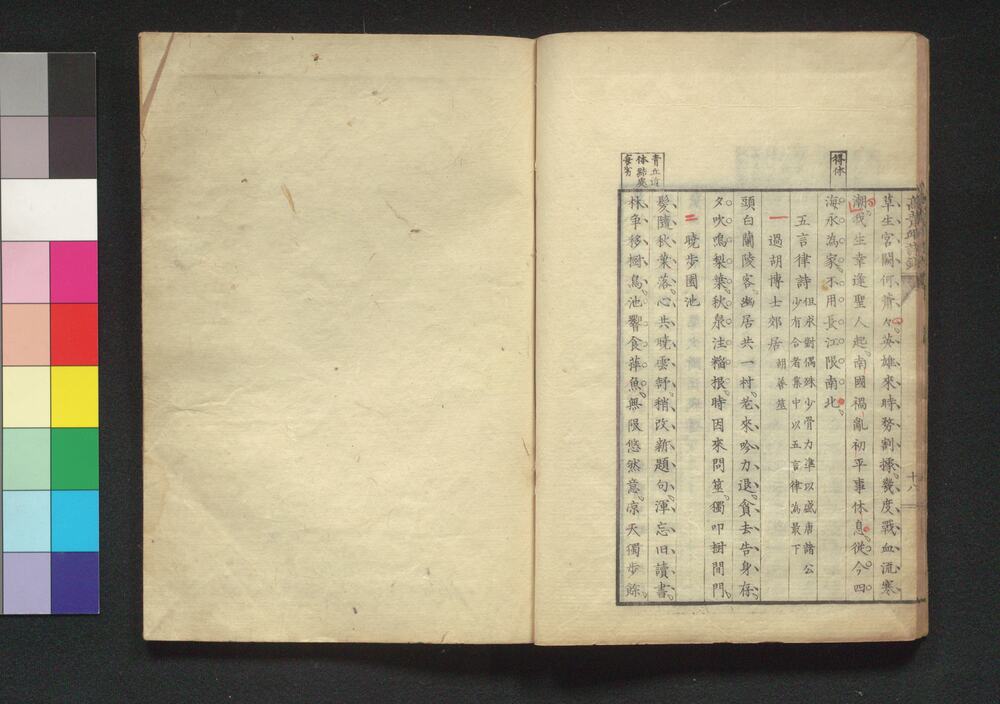 草生宮闕何蕭々英雄來時務割據幾度戰血流寒
潮我生幸逢聖人起南國禍亂初平事休息從今四
海永為家不用長江限南北
五言律詩 但求對偶殊少骨力準以盛唐諸公
少有合者集中以五言律為最下
一 過胡博士郊居 賴善筮
頭白蘭陵客幽居共一村老來吟力退貧去告身存
夕吹鳴梨葉秋泉注稻根時因來問筮獨叩樹間門
二 曉步園池
髮隨秋葉落心共曉雲舒稍改新題句渾忘旧讀書
林争移樹鳥池響食萍魚無限悠然意凉天獨步餘
得休
青丘近
体
十八